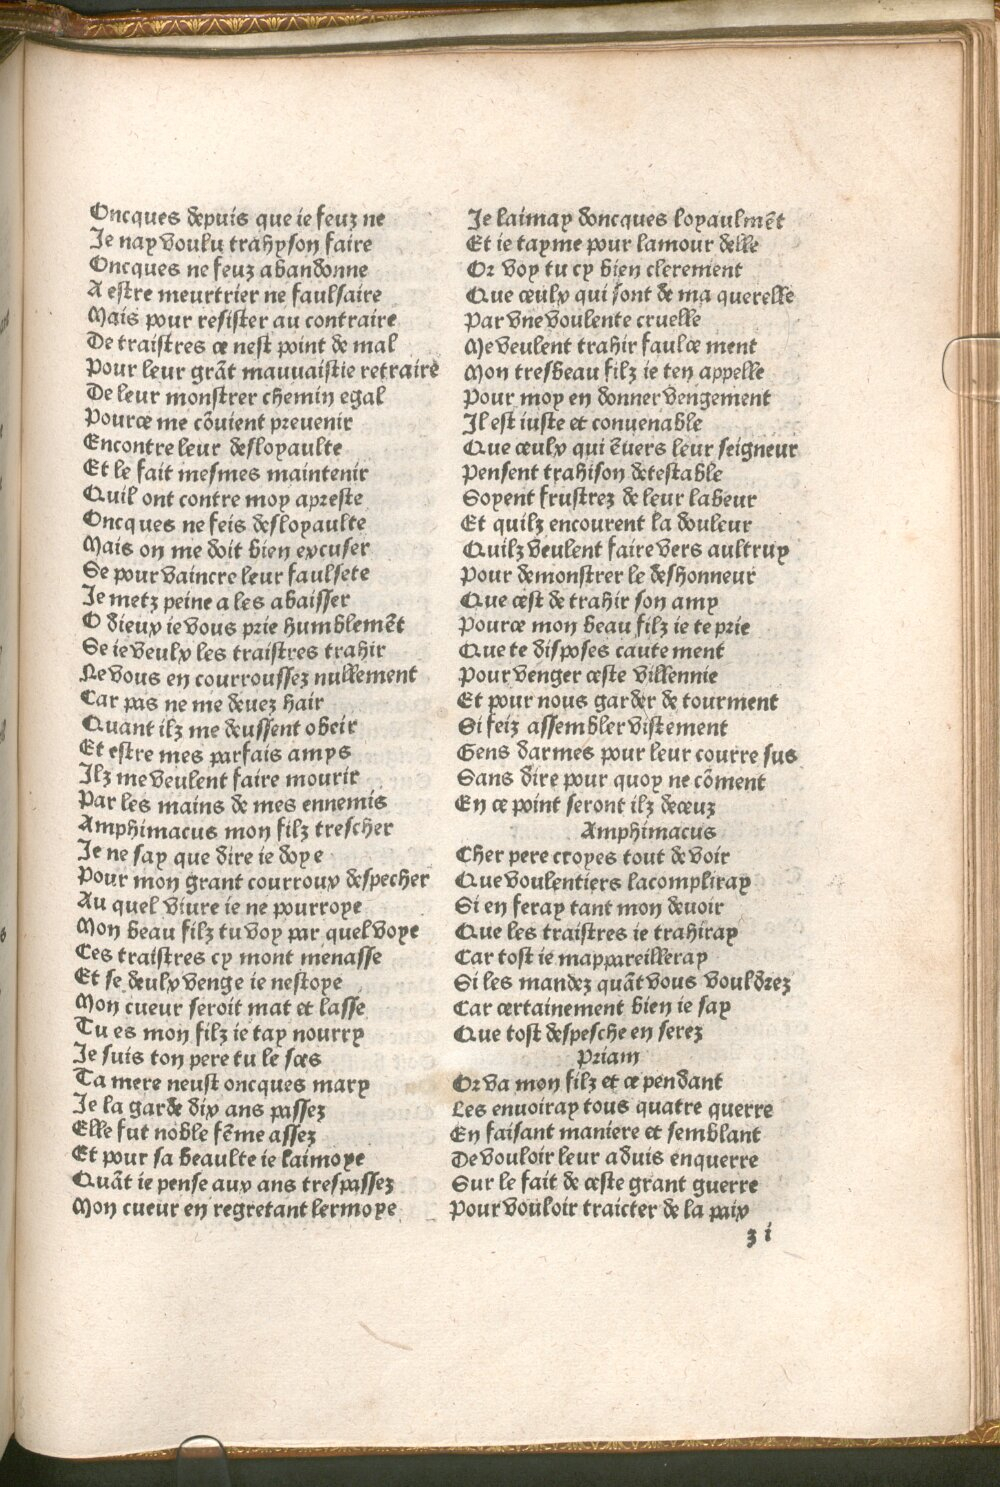 Oncques depuis que ie feuz ne
Je nay voulu trahyson faire
Oncques ne feuz abandonne
A estre meurtrier ne faulsaire
Mais pour resister au contraire
De traistres ce nest point de mal
Pour leur grãt mauuaistie retraire
De leur monstrer chemin egal
Pource me cõuient preuenir
Encontre leur desloyaulte
Et le fait mesmes maintenir
Quil ont contre moy apreste
Oncques ne feis desloyaulte
Mais on me doit bien excuser
Se pour vaincre leur faulsete
Je metz peine a les abaisser
O dieux ie vous prie humblemẽt
Se ie veulx les traistres trahir
Ne vous en courroussez nullement
Car pas ne me deuez hair
Quant ilz me deussent obeir
Et estre mes parfais amys
Ilz me veulent faire mourir
Par les mains de mes ennemis
Amphimacus mon filz trescher
Je ne say que dire ie doye
Pour mon grant courroux despecher
Au quel viure ie ne pourroye
Mon beau filz tu voy par quel voye
Ces traistres cy mont menasse
Et se deulx venge ie nestoye
Mon cueur seroit mat et lasse
Tu es mon filz ie tay nourry
Je suis ton pere tu le sces
Ta mere neust oncques mary
Je la garde dix ans passez
Elle fut noble fẽme assez
Et pour sa beaulte ie laimoye
Quãt ie pense aux ans trespassez
Mon cueur en regretant lermoye
Je laimay doncques loyaulmẽt
Et ie tayme pour lamour delle
Or voy tu cy bien clerement
Que ceulx qui sont de ma querelle
Par vne voulente cruelle
Me veulent trahir faulce ment
Mon tresbeau filz ie ten appelle
Pour moy en donner vengement
Il est iuste et conuenable
Que ceulx qui ẽuers leur seigneur
Pensent trahison detestable
Soyent frustrez de leur labeur
Et quilz encourent la douleur
Quilz veulent faire vers aultruy
Pour demonstrer le deshonneur
Que cest de trahir son amy
Pource mon beau filz ie te prie
Que te disposes caute ment
Pour venger ceste villennie
Et pour nous garder de tourment
Si feiz assembler vistement
Gens darmes pour leur courre sus
Sans dire pour quoy ne cõment
En ce point seront ilz deceuz
Amphimacus
Cher pere croyes tout de voir
Que voulentiers lacompliray
Si en feray tant mon deuoir
Que les traistres ie trahiray
Car tost ie mappareilleray
Si les mandez quãt vous vouldrez
Car certainement bien ie say
Que tost despesche en serez
Priam
Or va mon filz et ce pendant
Les enuoiray tous quatre querre
En faisant maniere et semblant
De vouloir leur aduis enquerre
Sur le fait de ceste grant guerre
Pour vouloir traicter de la paix
z i